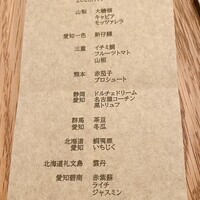 山梨 大穂稚
キャビア
モッツァレラ
愛知一色 新仔鰻
三重 イチミ鯛
フルーツトマト
山椒
熊本 赤茄子
プロシュート
静岡 ドルチェドリーム
愛知 名古屋コーチン
黒トリュフ
群馬 茶豆
愛知 冬瓜
北海道 鯛夷鹿
愛知 いちじく
北海道礼文島 雲丹
愛知碧南 赤紫蘇
ライチ
ジャスミン